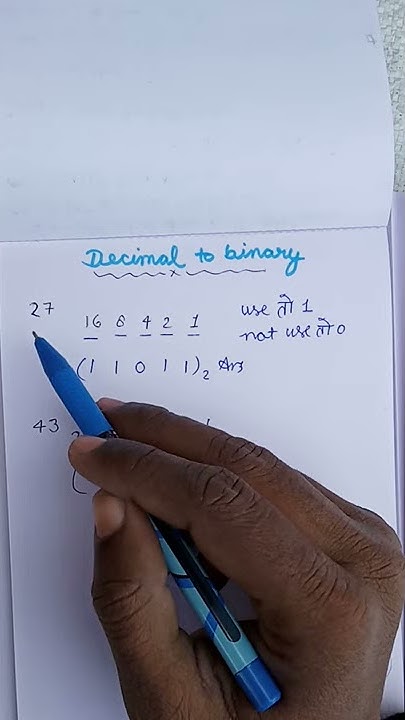 Decimal to binary
27
16 8 4 2 1
use तो 1
not use तो 0
(1 1 0 1 1)2 Ans
43